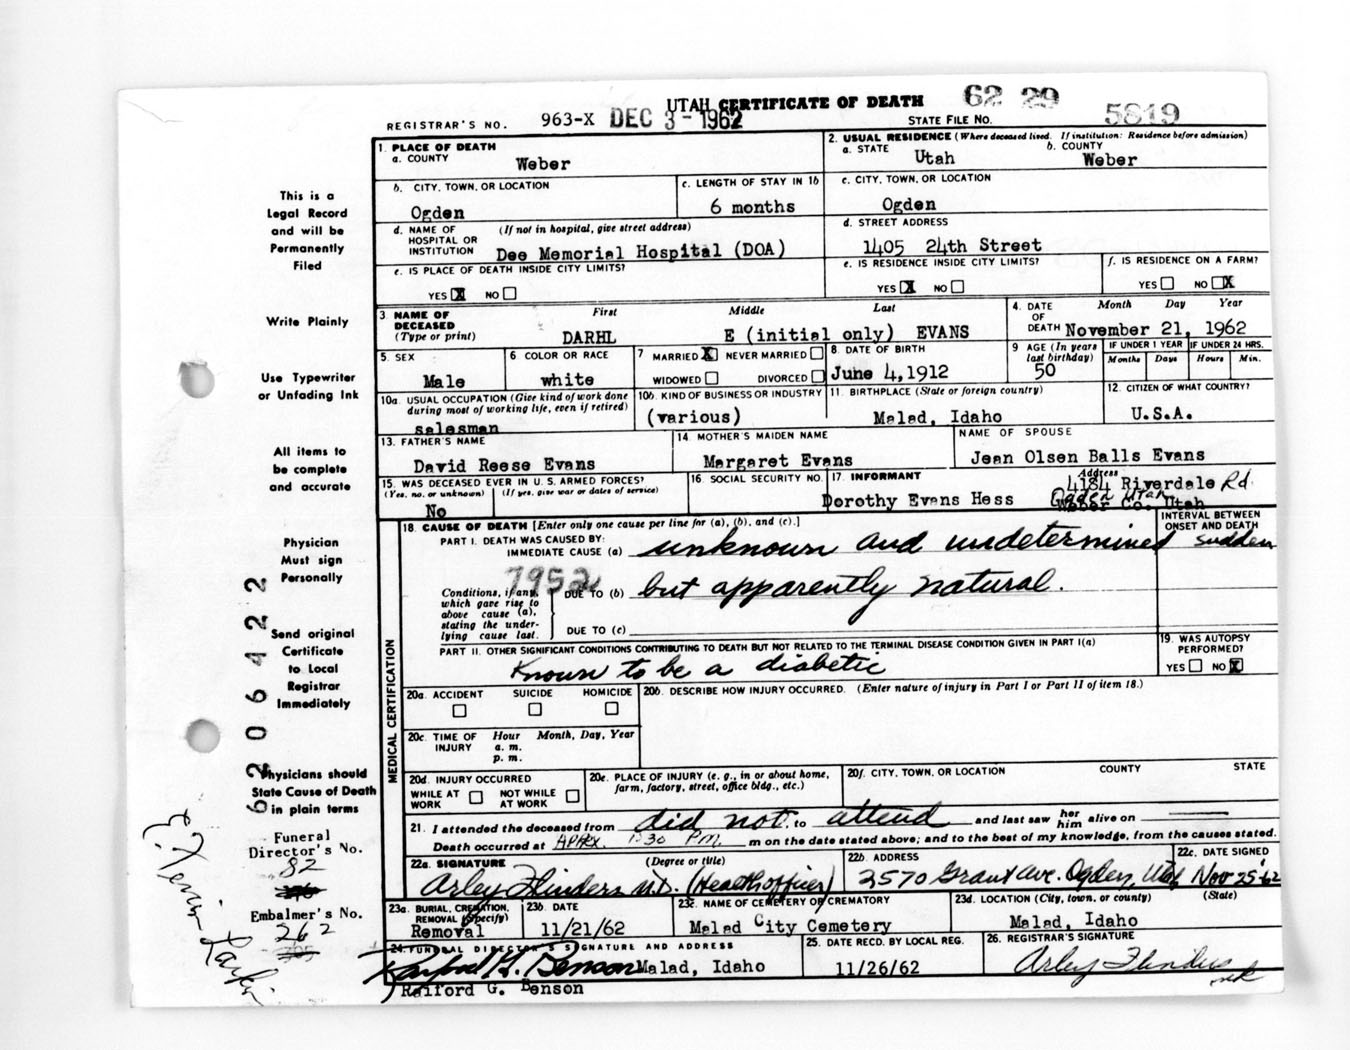 UTAH CERTIFICATE OF DEATH 62 29
REGISTRAR'S NO. 963-X DEC 3-1962 STATE FILE NO. 5819
1. PLACE OF DEATH
a. COUNTY Weber
2. USUAL RESIDENCE (Where deceased lived. If institution: Residence before admission)
a. STATE Utah b. COUNTY Weber
b. CITY, TOWN, OR LOCATION Ogden
c. LENGTH OF STAY IN 1b 6 months
c. CITY, TOWN, OR LOCATION Ogden
d. NAME OF HOSPITAL OR INSTITUTION (If not in hospital, give street address) Dee Memorial Hospital (DOA)
d. STREET ADDRESS 1405 24th Street
e. IS PLACE OF DEATH INSIDE CITY LIMITS? YES X NO
e. IS RESIDENCE INSIDE CITY LIMITS? YES X NO
f. IS RESIDENCE ON A FARM? YES NO X
3. NAME OF DECEASED (Type or print) First Middle Last
DARHL E (initial only) EVANS
4. DATE OF DEATH Month Day Year
November 21, 1962
5. SEX Male
6 COLOR OR RACE white
7 MARRIED X NEVER MARRIED
WIDOWED DIVORCED
8. DATE OF BIRTH June 4, 1912
9 AGE (In years last birthday) 50
IF UNDER 1 YEAR Months Days
IF UNDER 24 HRS. Hours Min.
10a. USUAL OCCUPATION (Give kind of work done during most of working life, even if retired) salesman
10b. KIND OF BUSINESS OR INDUSTRY (various)
11. BIRTHPLACE (State or foreign country) Malad, Idaho
12. CITIZEN OF WHAT COUNTRY? U.S.A.
13. FATHER'S NAME David Reese Evans
14. MOTHER'S MAIDEN NAME Margaret Evans
NAME OF SPOUSE Jean Olsen Balls Evans
15. WAS DECEASED EVER IN U.S. ARMED FORCES? (Yes, no, or unknown) (If yes, give war or dates of service) No
16. SOCIAL SECURITY NO.
17. INFORMANT Dorothy Evans Hess
Address 4184 Riverdale Rd.
Ogden Utah
Weber Co. Utah
18. CAUSE OF DEATH [Enter only one cause per line for (a), (b), and (c).]
INTERVAL BETWEEN ONSET AND DEATH
PART I. DEATH WAS CAUSED BY:
IMMEDIATE CAUSE (a) unknown and undetermined sudden
7952
Conditions, if any, which gave rise to above cause (a), stating the underlying cause last.
DUE TO (b) but apparently natural.
DUE TO (c)
PART II. OTHER SIGNIFICANT CONDITIONS CONTRIBUTING TO DEATH BUT NOT RELATED TO THE TERMINAL DISEASE CONDITION GIVEN IN PART I(a)
Known to be a diabetic
19. WAS AUTOPSY PERFORMED? YES NO X
MEDICAL CERTIFICATION
20a. ACCIDENT SUICIDE HOMICIDE
20b. DESCRIBE HOW INJURY OCCURRED. (Enter nature of injury in Part I or Part II of item 18.)
20c. TIME OF INJURY Hour Month, Day, Year
a. m.
p. m.
20d. INJURY OCCURRED
WHILE AT WORK NOT WHILE AT WORK
20e. PLACE OF INJURY (e. g., in or about home, farm, factory, street, office bldg., etc.)
20f. CITY, TOWN, OR LOCATION COUNTY STATE
21. I attended the deceased from did not to attend and last saw her him alive on
Death occurred at Appx. P.M. m on the date stated above; and to the best of my knowledge, from the causes stated.
22a. SIGNATURE (Degree or title) Arley Flinders M.D. (Health officer)
22b. ADDRESS 2570 Grant Ave. Ogden, Utah
22c. DATE SIGNED Nov 25-62
23a. BURIAL, CREMATION, REMOVAL (Specify) Removal
23b. DATE 11/21/62
23c. NAME OF CEMETERY OR CREMATORY Malad City Cemetery
23d. LOCATION (City, town, or county) (State) Malad, Idaho
24. FUNERAL DIRECTOR'S SIGNATURE AND ADDRESS
Raiford G. Benson Malad, Idaho
Raiford G. Benson
25. DATE RECD. BY LOCAL REG. 11/26/62
26. REGISTRAR'S SIGNATURE Arley Flinders
This is a
Legal Record
and will be
Permanently
Filed
Write Plainly
Use Typewriter
or Unfading Ink
All items to
be complete
and accurate
Physician
Must sign
Personally
Send original
Certificate
to Local
Registrar
Immediately
Physicians should
State Cause of Death
in plain terms
Funeral
Director's No.
82
Embalmer's No.
262
62 06422